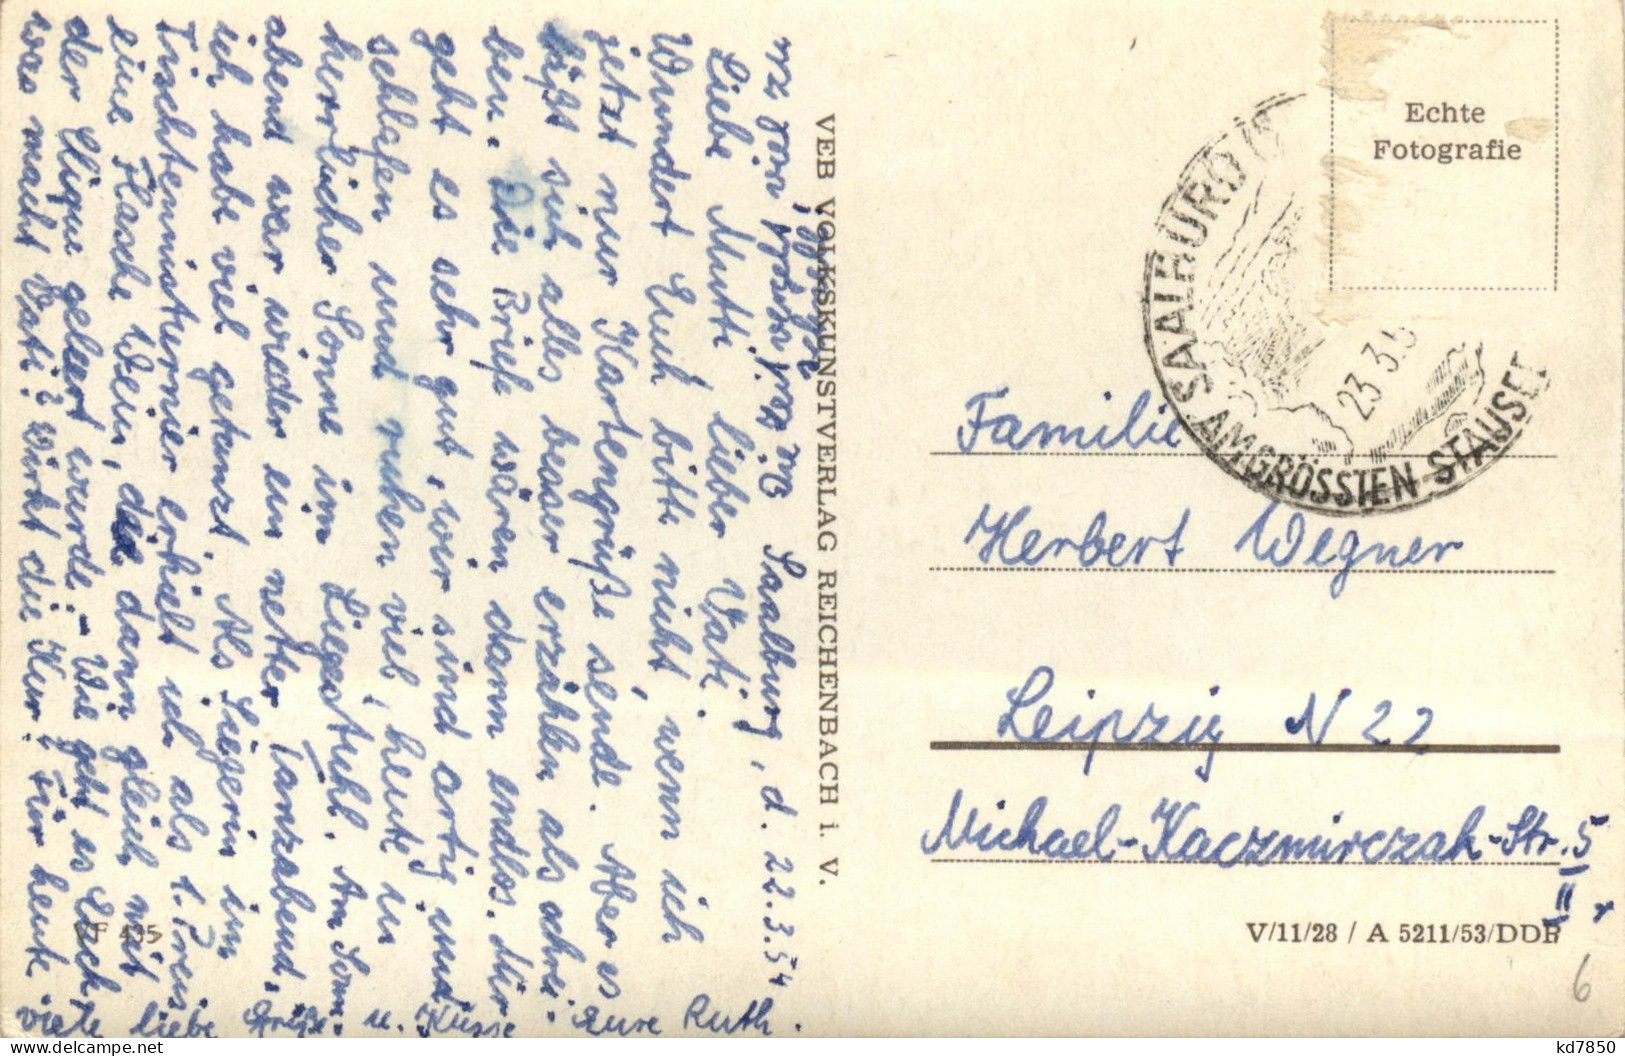 Saalburg, d. 22.3.54
Liebe Mutti, lieber Vati.
Wundert Euch bitte nicht, wenn ich
jetzt nur Kartengrüße sende. Aber es
läßt sich alles besser erzählen als schrei-
ben. Die Briefe wären dann endlos. Mir
geht es sehr gut, wir sind artig und
schlafen und ruhen viel, heute in
herrlicher Sonne im Liegestuhl. Am Sonn-
abend war wieder ein netter Tanzabend,
ich habe viel getanzt. Als Siegerin im
Tischtennisturnier erhielt ich als 1. Preis
eine Flasche Wein, die dann gleich mit
der Clique geleert wurde. - Wie geht es Euch,
was macht Vati? Wirkt die Kur? Für heute
viele liebe Grüße u. Küsse Eure Ruth.
VEB VOLKSKUNSTVERLAG REICHENBACH i. V.
VF 435
Echte
Fotografie
SAALBURG
AM GRÖSSTEN STAUSEE
23.3.5
Familie
Herbert Wegner
Leipzig N 22
Michael-Kaczmirczak-Str. 5
II r
V/11/28 / A 5211/53/DDR
6
kd7850
delcampe.net